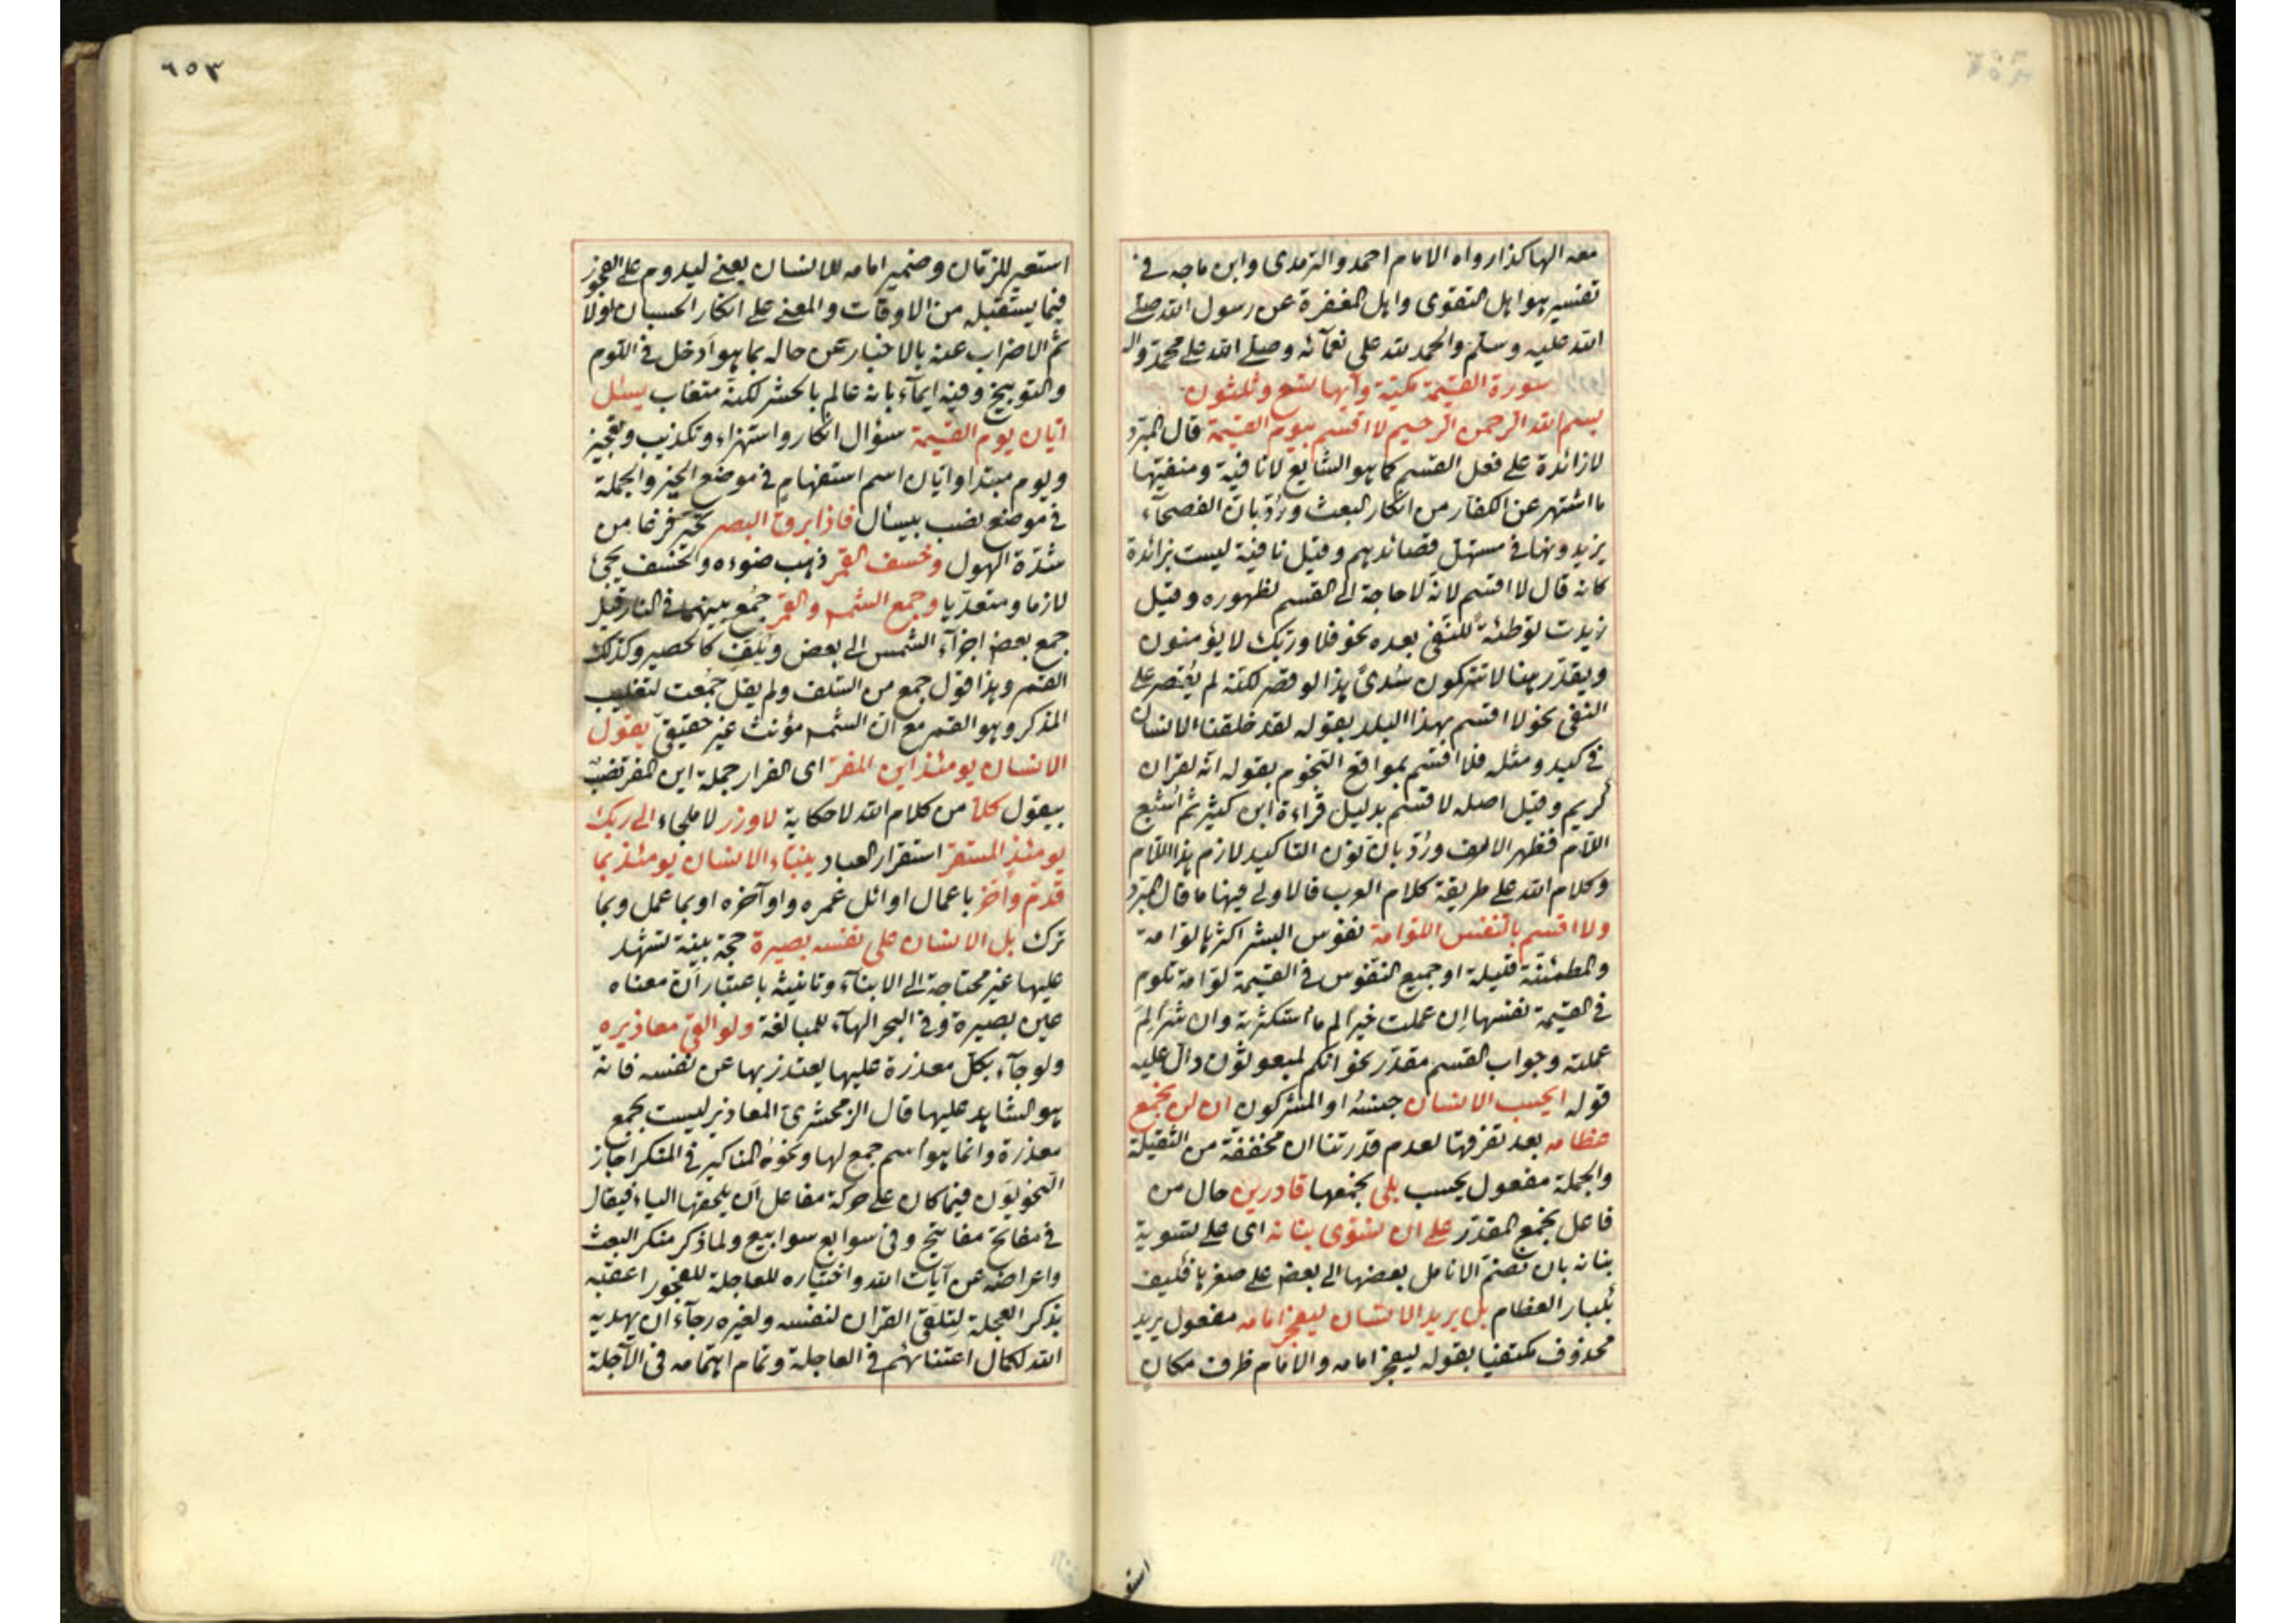 معه الها كذا رواه الامام احمد والترمذى وابن ماجه فى
تفسير هو اهل التقوى واهل المغفرة عن رسول الله صلى
الله عليه وسلم والحمد لله على نعمآئه وصلى الله على محمد واله
سورة القيمة مكية وآيها تسع وثلثون
بسم الله الرحمن الرحيم لا اقسم بيوم القيمة قال المبرد
لا زائدة على فعل القسم كما هو الشايع لا نافية ومنفيتها
ما اشتهر عن الكفار من انكار البعث ورد بان الفصحآء
يزيدونها فى مستهل قصائدهم وقيل نافية ليست بزائدة
كانه قال لا اقسم لانه لا حاجة الى القسم لظهوره وقيل
زيدت توطئة للنفى بعده نحو فلا وربك لا يؤمنون
ويقدر هنا لا تتركون سدى هذا لو قصر لكنه لم يقتصر على
النفى نحو لا اقسم بهذا البلد بقوله لقد خلقنا الانسان
فى كبد ومثله فلا اقسم بمواقع النجوم بقوله انه لقران
كريم وقيل اصله لاقسم بدليل قراءة ابن كثير ثم اشبع
اللام فظهر الالف ورد بان نون التاكيد لازم هذا اللام
وكلام الله على طريقة كلام العرب فالاولى فيهنا ما قال المبرد
ولا اقسم بالنفس اللوامة نفوس البشر اكثرها لوامة
والمطمئنة قليلة او جميع النفوس فى القيمة لوامة تلوم
فى القيمة نفسها ان عملت خيرا لم ما استكثرته وان شرا لم
عملته وجواب القسم مقدر نحو انكم لمبعوثون دال عليه
قوله ايحسب الانسان جنسه او المشركون ان لن نجمع
عظامه بعد تفرقها لعدم قدرتنا ان مخففة من الثقيلة
والجملة مفعول يحسب بلى نجمعها قادرين حال من
فاعل نجمع المقدر على ان نسوى بنانه اى على تسوية
بنانه بان نضم الانامل بعضها الى بعض على صغرها فكيف
بكبار العظام بل يريد الانسان ليفجر امامه مفعول يريد
محذوف مكتفيا بقوله ليفجر امامه والامام ظرف مكان
استو
٦٥٣
استعير للزمان وضمير امامه للانسان يعنى ليدوم على الفجور
فيما يستقبله من الاوقات والمعنى على انكار الحسبان اولا
ثم الاضراب عنه بالاخبار عن حاله بما هو ادخل فى اللوم
والتوبيخ وفيه ايمآء بانه عالم بالحشر لكنه متغاب يسئل
ايان يوم القيمة سؤال انكار واستهزاء وتكذيب وتعجيز
ويوم مبتدا وايان اسم استفهام فى موضع الخبر والجملة
فى موضع نصب بيسأل فاذا برق البصر تحير فزعا من
شدة الهول وخسف القمر ذهب ضوءه والخسف يجئ
لازما ومتعديا وجمع الشمس والقمر جمع بينهما فى النار قيل
جمع بعض اجزآء الشمس الى بعض ويلف كالحصير وكذلك
القمر وهذا قول جمع من السلف ولم يقل جمعت لتغليب
المذكر وهو القمر مع ان الشمس مؤنث غير حقيقى يقول
الانسان يومئذ اين المفر اى الفرار جملة اين المفر نصب
بيقول كلا من كلام الله لا حكاية لا وزر لا ملجاء الى ربك
يومئذ المستقر استقرار العباد ينبئاء الانسان يومئذ بما
قدم واخر باعمال اوائل عمره واوآخره او بما عمل وبما
ترك بل الانسان على نفسه بصيرة حجة بينة تشهد
عليها غير محتاجة الى الانبآء وتانيثه باعتبار ان معناه
عين بصيرة وفى البحر الهآء للمبالغة ولو القى معاذيره
ولو جآء بكل معذرة عليها يعتذر بها عن نفسه فانه
هو الشاهد عليها قال الزمخشرى المعاذير ليست بجمع
معذرة وانما هو اسم جمع لها ونحوه المناكير فى المنكر اجاز
النحويون فيما كان على حركة مفاعل ان يلحقها الياء فيقال
فى مفاتح مفاتيح وفى سوابع سوابيع ولما ذكر منكر البعث
واعراضه عن آيات الله واختياره للعاجلة للفجور اعقبه
بذكر العجلة لتلقى القران لنفسه ولغيره رجآء ان يهديه
الله لكمال اعتنائهم فى العاجلة وتمام اهتمامه فى الآجلة